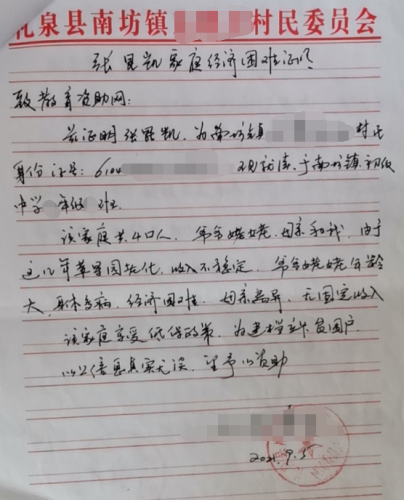 礼泉县南坊镇 村民委员会
张昆凯家庭经济困难证明
致教育资助网:
兹证明张昆凯,为南坊镇 村民
身份证号:6104 现就读于南坊镇初级
中学 年级 班
该家庭共4口人,爷爷姥姥,母亲和我,由于
这几年苹果园老化,收入不稳定,爷爷姥姥年龄
大,身体多病,经济困难,母亲离异,无固定收入
该家庭享受低保政策,为建档立卡贫困户
以上信息真实无误,望予以资助
2021.9.5